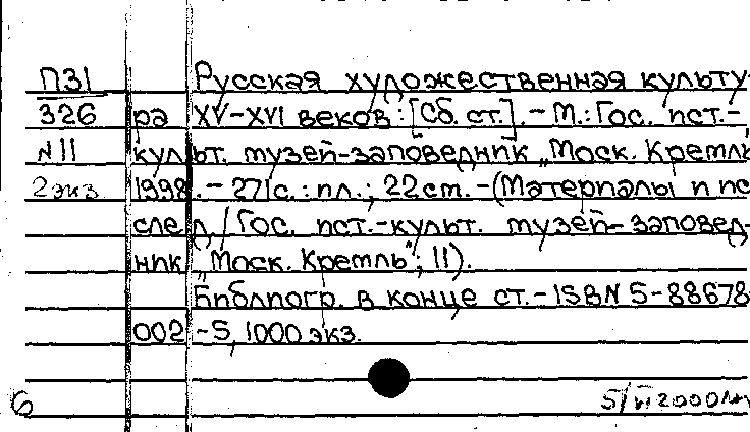 П31 Русская художественная культу-
326 ра XV-XVI веков : [Сб. ст.]. - М.: Гос. ист.-
N11 культ. музей-заповедник „Моск. Кремль
2экз 1998. - 271с. : ил. ; 22см. - (Материалы и ис
след / Гос. ист.-культ. музей-заповед-
ник „Моск. Кремль"; 11).
Библиогр. в конце ст. - ISBN 5-88678
002-5, 1000 экз.
6 5/VI 2000